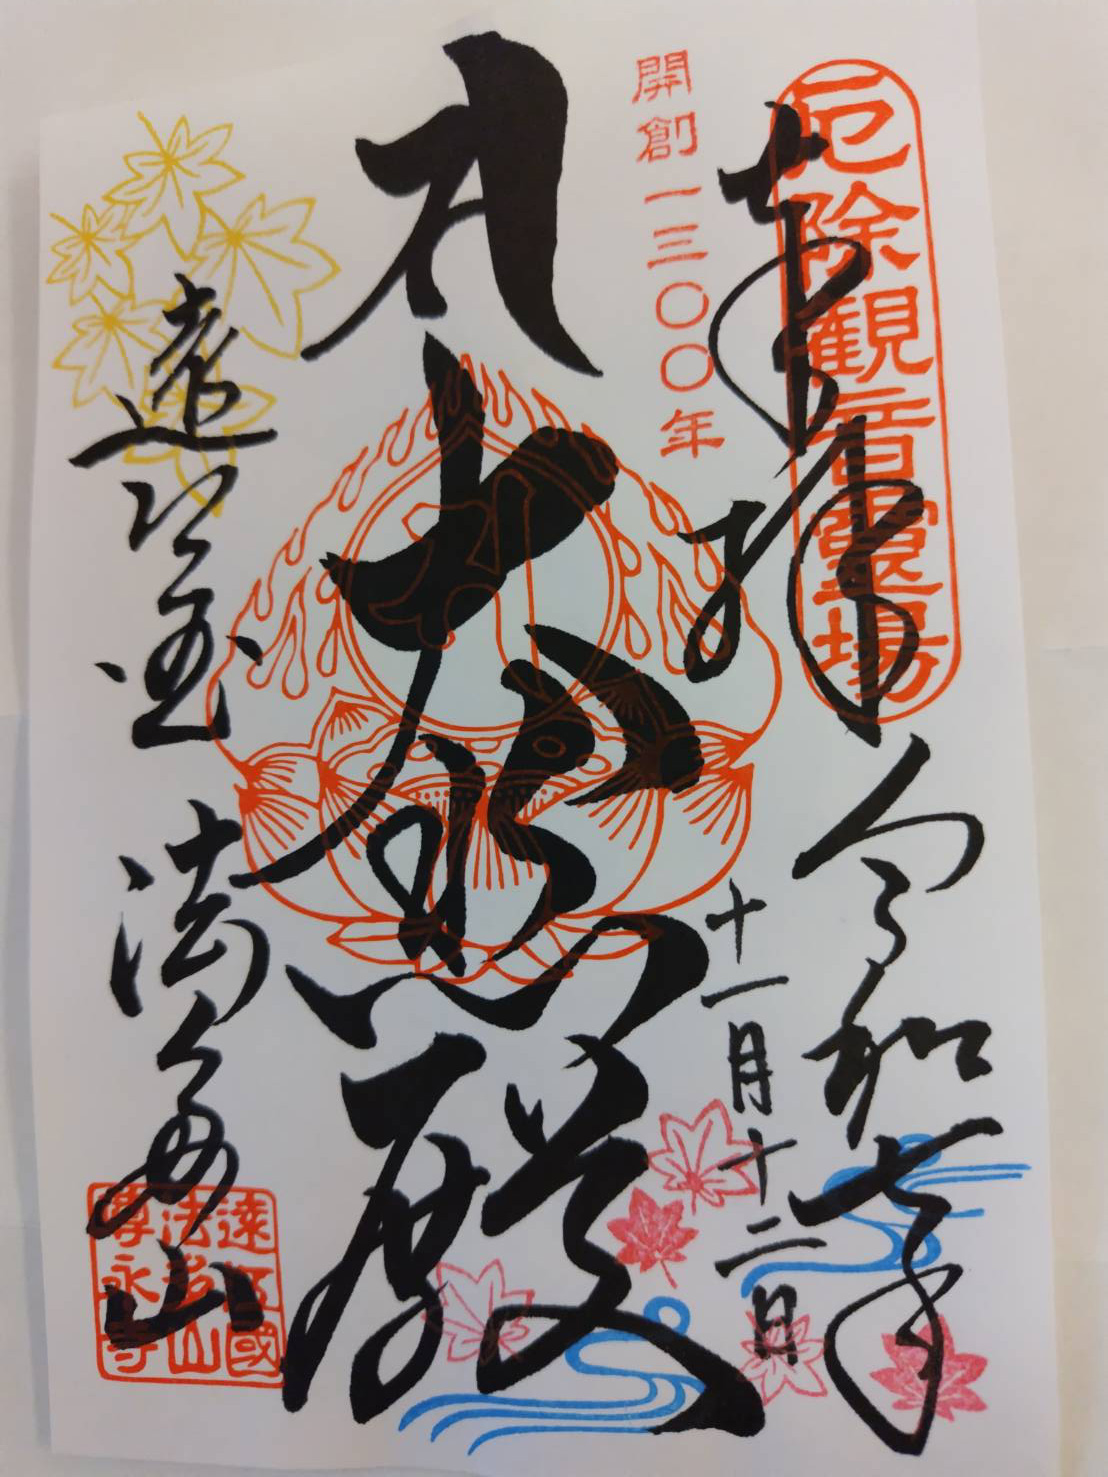 厄除観音靈場
奉拝
令和七年
十一月十二日
開創一三〇〇年
大悲殿
遠江国
法多山
遠江國
法多山
尊永寺